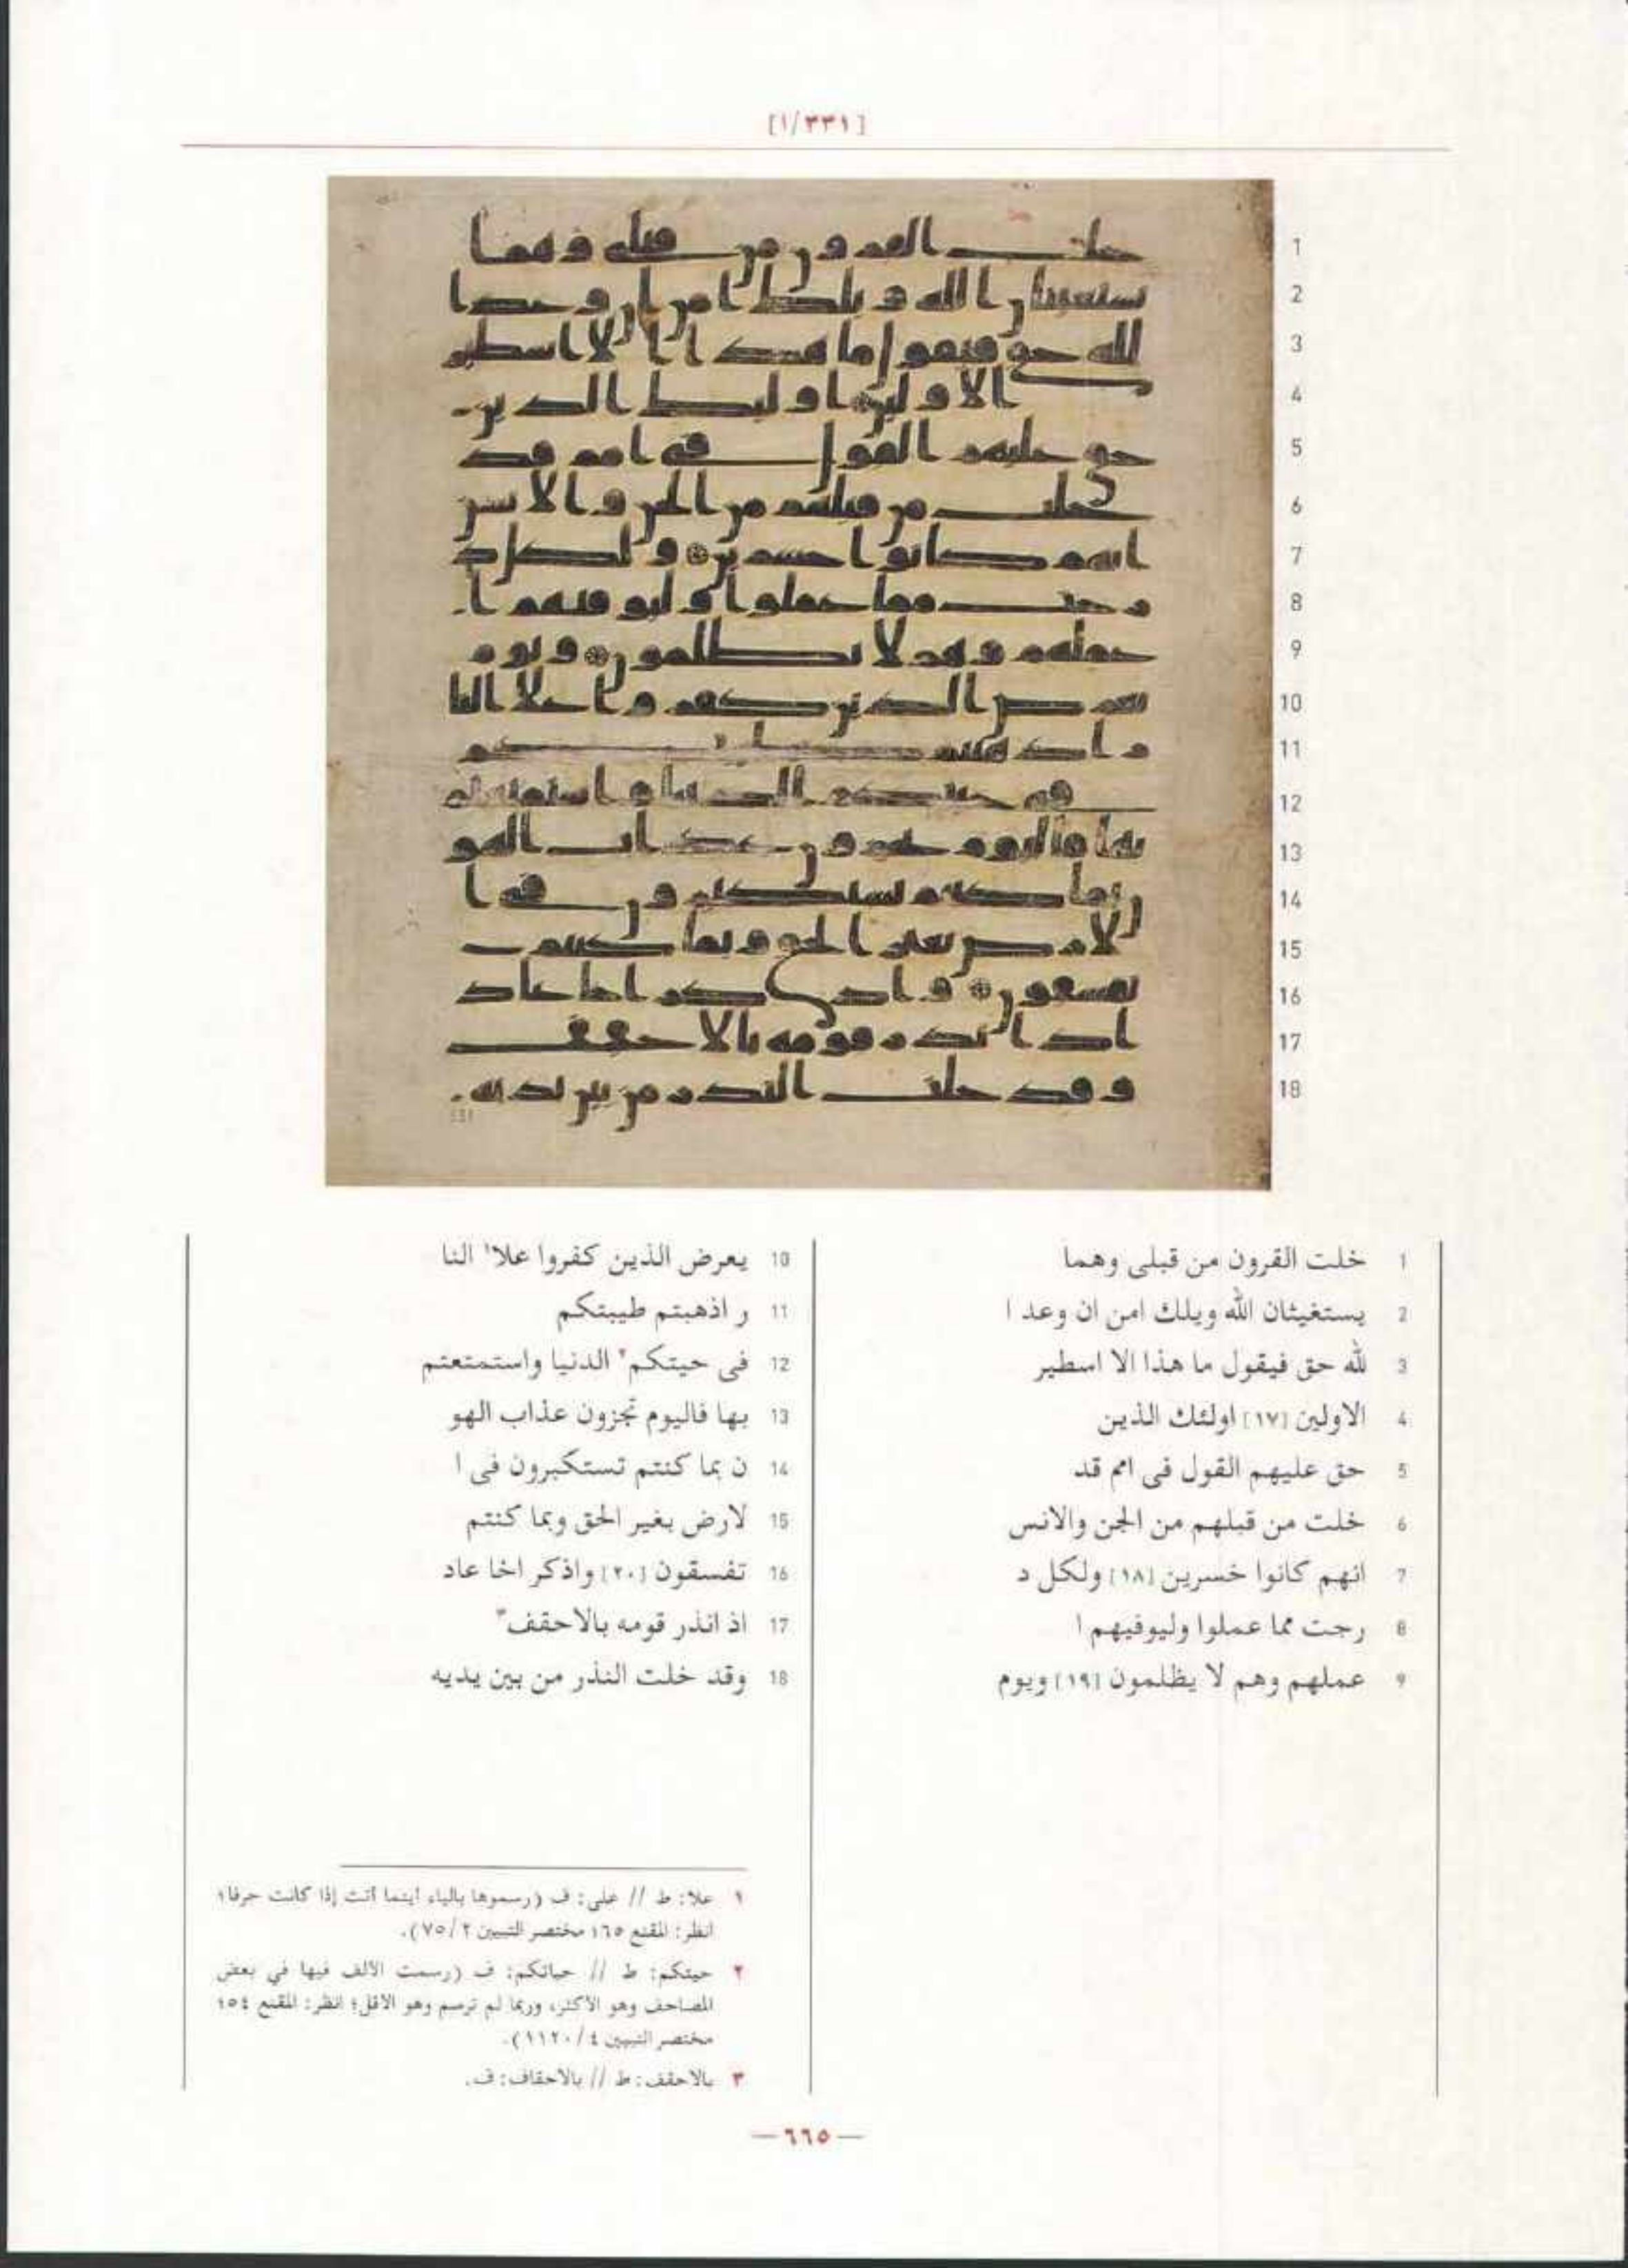 [١/٣٣١]
1 خلت القرون من قبلى وهما
2 يستغيثان الله ويلك امن ان وعد ا
3 لله حق فيقول ما هذا الا اسطير
4 الاولين [١٧] اولئك الذين
5 حق عليهم القول فى امم قد
6 خلت من قبلهم من الجن والانس
7 انهم كانوا خسرين [١٨] ولكل د
8 رجت مما عملوا وليوفيهم ا
9 عملهم وهم لا يظلمون [١٩] ويوم
10 يعرض الذين كفروا علا١ النا
11 ر اذهبتم طيبتكم
12 فى حيتكم٢ الدنيا واستمتعتم
13 بها فاليوم تجزون عذاب الهو
14 ن بما كنتم تستكبرون فى ا
15 لارض بغير الحق وبما كنتم
16 تفسقون [٢٠] واذكر اخا عاد
17 اذ انذر قومه بالاحقف٣
18 وقد خلت النذر من بين يديه
١ علا: ط // على: ف (رسموها بالياء أينما أتت إذا كانت حرفا؛
انظر: المقنع ٦٥؛ مختصر التبيين ٢/ ٧٥).
٢ حيتكم: ط // حياتكم: ف (رسمت الألف فيها في بعض
المصاحف وهو الأكثر، وربما لم ترسم وهو الأقل؛ انظر: المقنع ٥٤؛
مختصر التبيين ٤/ ١١٢٠).
٣ بالاحقف: ط // بالاحقاف: ف.
— ٦٦٥ —